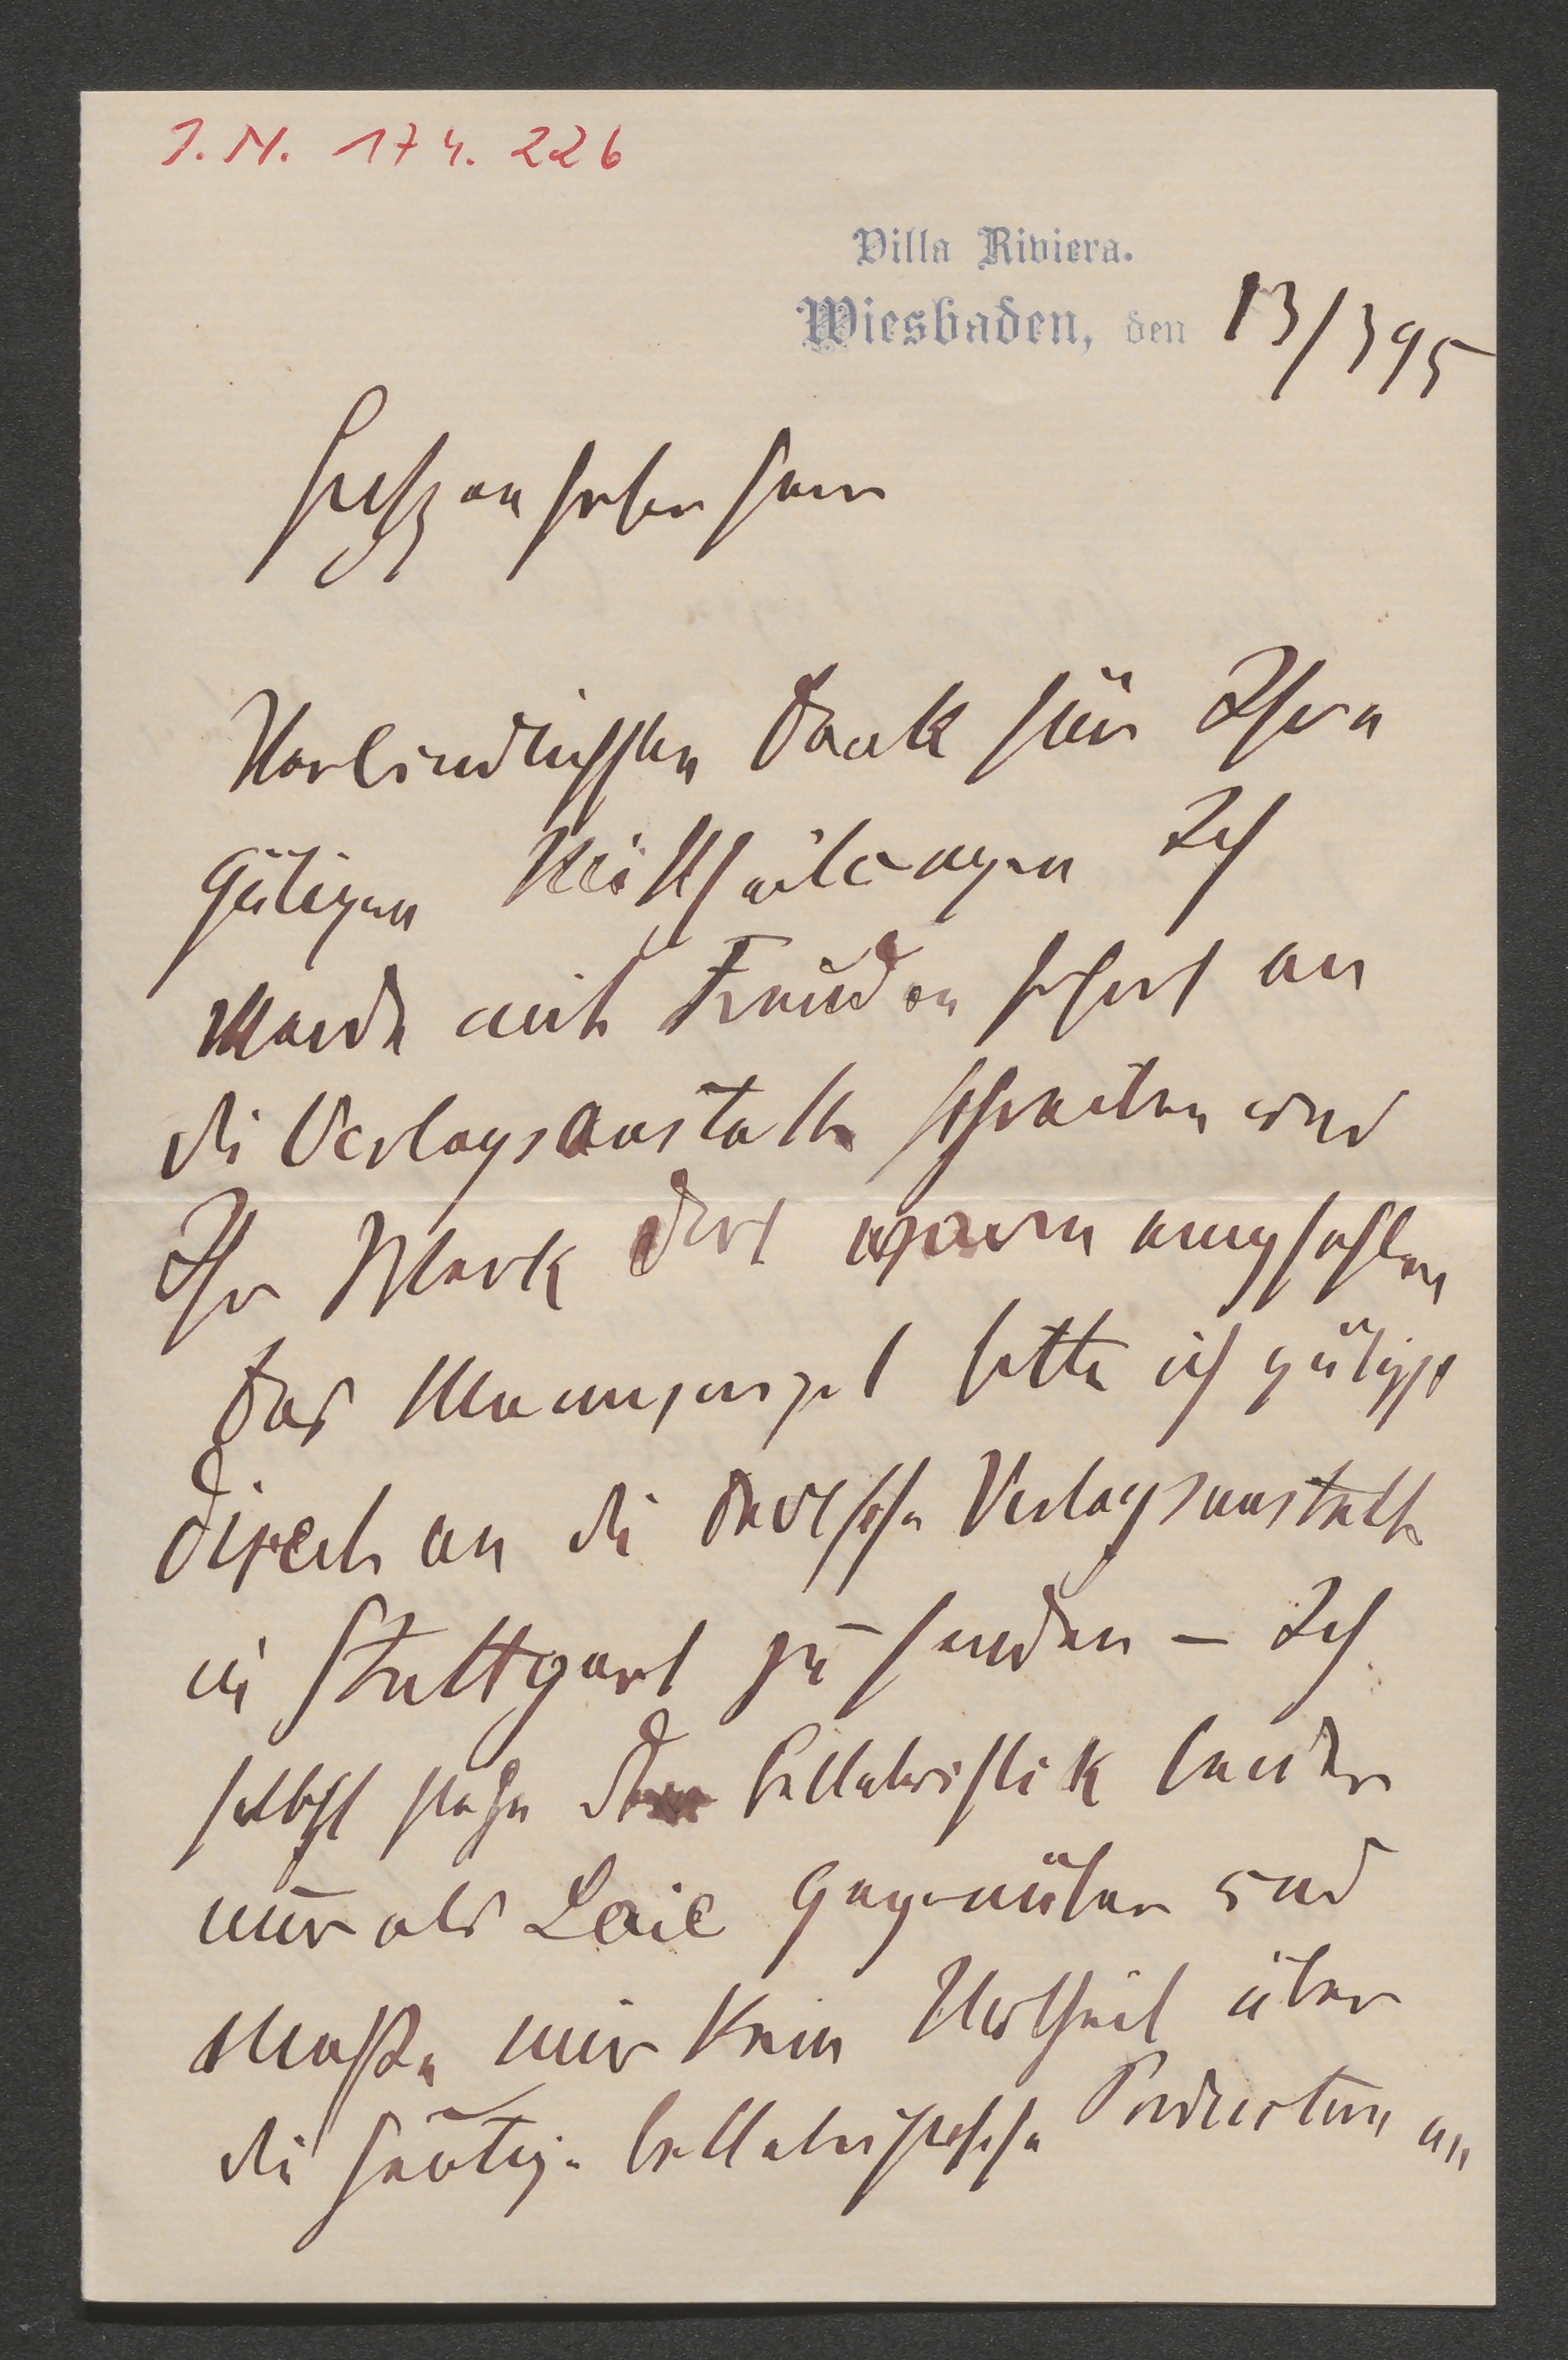 I. N. 174. 226
Villa Riviera.
Wiesbaden, den 13/3 95
Hochzuverehrender Herr
Verbindlichsten Dank für Ihre
gütigen Mittheilungen Ich
werde mit Freuden sofort an
die Verlagsanstalt schreiben und
Ihr Werk dort warm empfehlen
Das Manuscript bitte ich gütigst
direct an die Deutsche Verlagsanstalt
in Stuttgart zu senden – Ich
selbst stehe der Belletristik leider
nur als Laie gegenüber und
maße mir kein Urtheil über
die heutige belletristische Production an